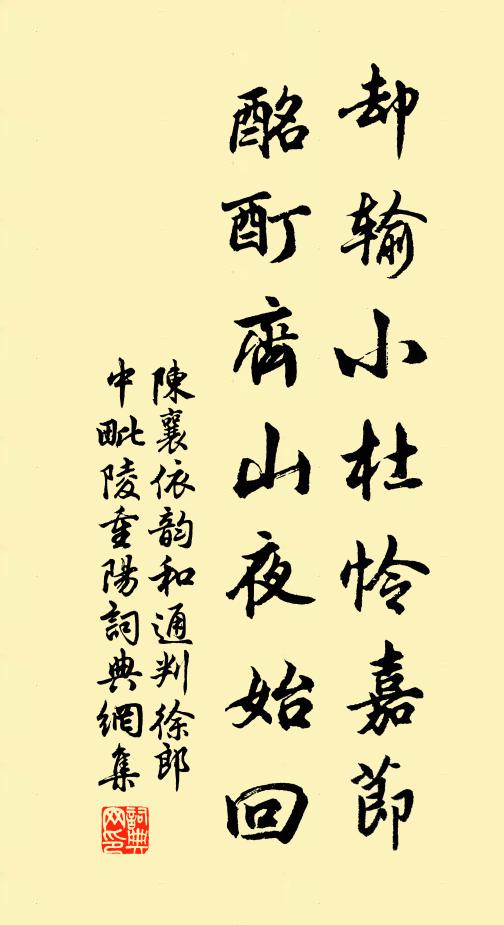 却输小杜怜嘉節
酩酊齊山夜始回
陳襄依韵和通判徐郎
中毗陵重陽詞典網集
詞典
网印